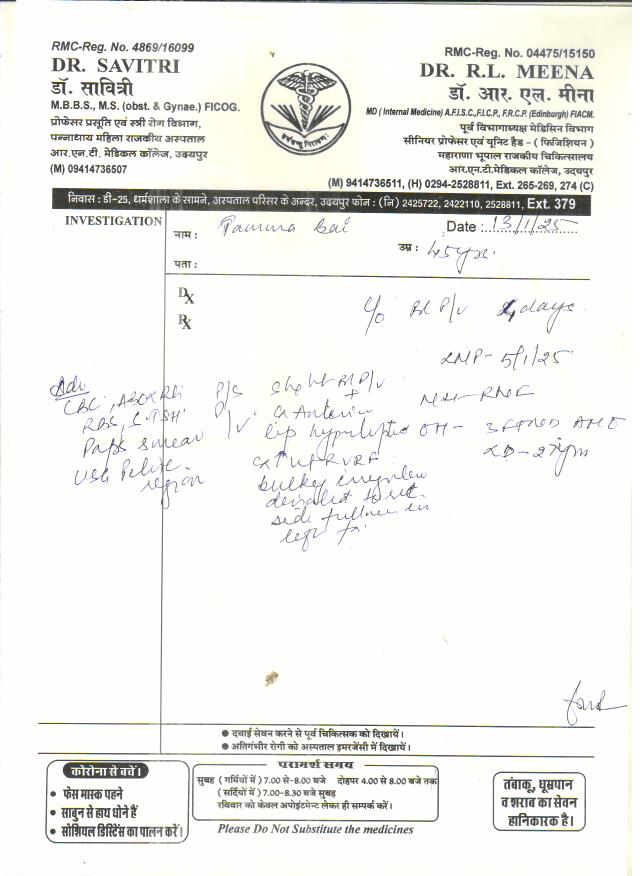 RMC-Reg. No. 4869/16099
DR. SAVITRI
डॉ. सावित्री
M.B.B.S., M.S. (obst. & Gynae.) FICOG.
प्रोफेसर प्रसूति एवं स्त्री रोग विभाग,
पन्नाधाय महिला राजकीय अस्पताल
आर.एन.टी. मेडिकल कॉलेज, उदयपुर
(M) 09414736507
RMC-Reg. No. 04475/15150
DR. R.L. MEENA
डॉ. आर. एल. मीना
MD ( Internal Medicine) A.F.I.S.C.,F.I.C.P., F.R.C.P. (Edinburgh) FIACM.
पूर्व विभागाध्यक्ष मेडिसिन विभाग
सीनियर प्रोफेसर एवं यूनिट हैड - ( फिजिशियन )
महाराणा भूपाल राजकीय चिकित्सालय
आर.एन.टी. मेडिकल कॉलेज, उदयपुर
(M) 9414736511, (H) 0294-2528811, Ext. 265-269, 274 (C)
निवास : डी-25, धर्मशाला के सामने, अस्पताल परिसर के अन्दर, उदयपुर फोन : (नि) 2425722, 2422110, 2528811, Ext. 379
INVESTIGATION
नाम : Bai
Date : 13/1/25
उम्र : 45yrs.
पता :
Dx
Rx
C/o Bl P/v days
LMP - 5/1/25
Adv
CBC, ABO & Rh
RBS, S.TSH
Paps smear
USG Pelvic
region
P/S slight Bl P/v
+
Cx Anterior
P/V lip
Cx ↑ RVRF
bulky
side fullness in
left
MH - RNF
OH - 3
LD - 27 yrs
● दवाई सेवन करने से पूर्व चिकित्सक को दिखायें।
● अतिगंभीर रोगी को अस्पताल इमरजेंसी में दिखायें।
कोरोना से बचें।
● फेस मास्क पहने
● साबुन से हाथ धोने हैं
● सोशियल डिस्टेंस का पालन करें।
परामर्श समय
सुबह ( गर्मियों में ) 7.00 से-8.00 बजे दोहपर 4.00 से 8.00 बजे तक
( सर्दियों में ) 7.00-8.30 बजे सुबह
रविवार को केवल अपोइंटमेन्ट लेकर ही सम्पर्क करें।
Please Do Not Substitute the medicines
तंबाकू, धूम्रपान
व शराब का सेवन
हानिकारक है।